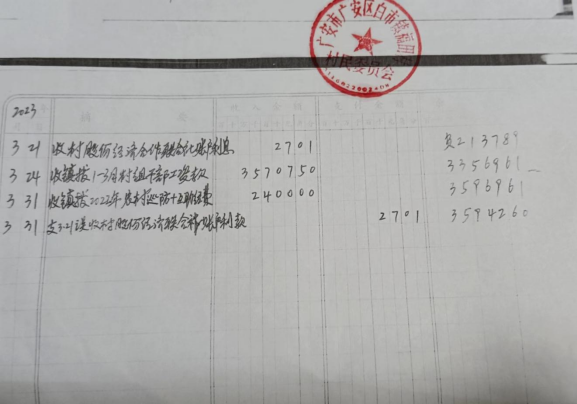 广安市广安区白市镇福田村
村民委员会
2023
摘 要 收入金额 支出金额
3 21 收村股份经济合作联合社账户利息 2701 负213789
3 24 收镇拨1-3月村组干部工资款 3570750 3356961
3 31 收镇拨2022年 经费 240000 3596961
3 31 支3.21误收村股份经济联合社账户利款 2701 3594260